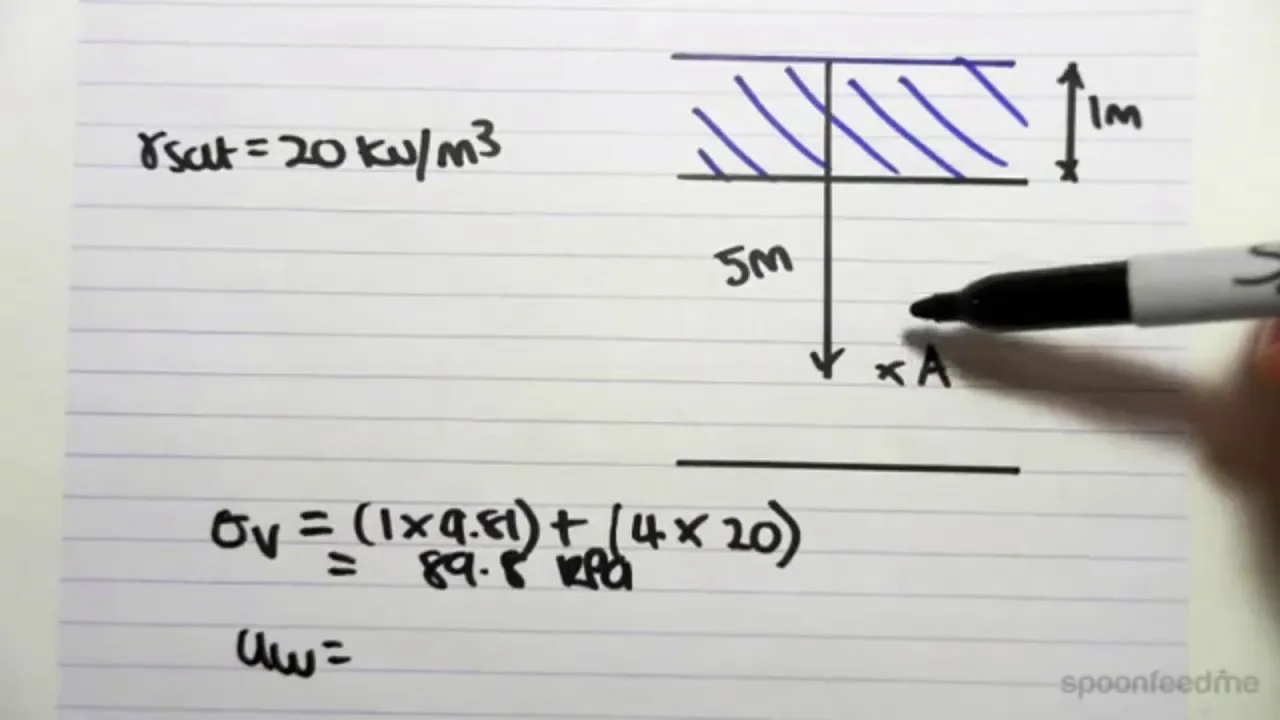 1m
γsat = 20 kN/m³
5m
x A
σv = (1 x 9.81) + (4 x 20)
= 89.8 kPa
uw =
spoonfeedme